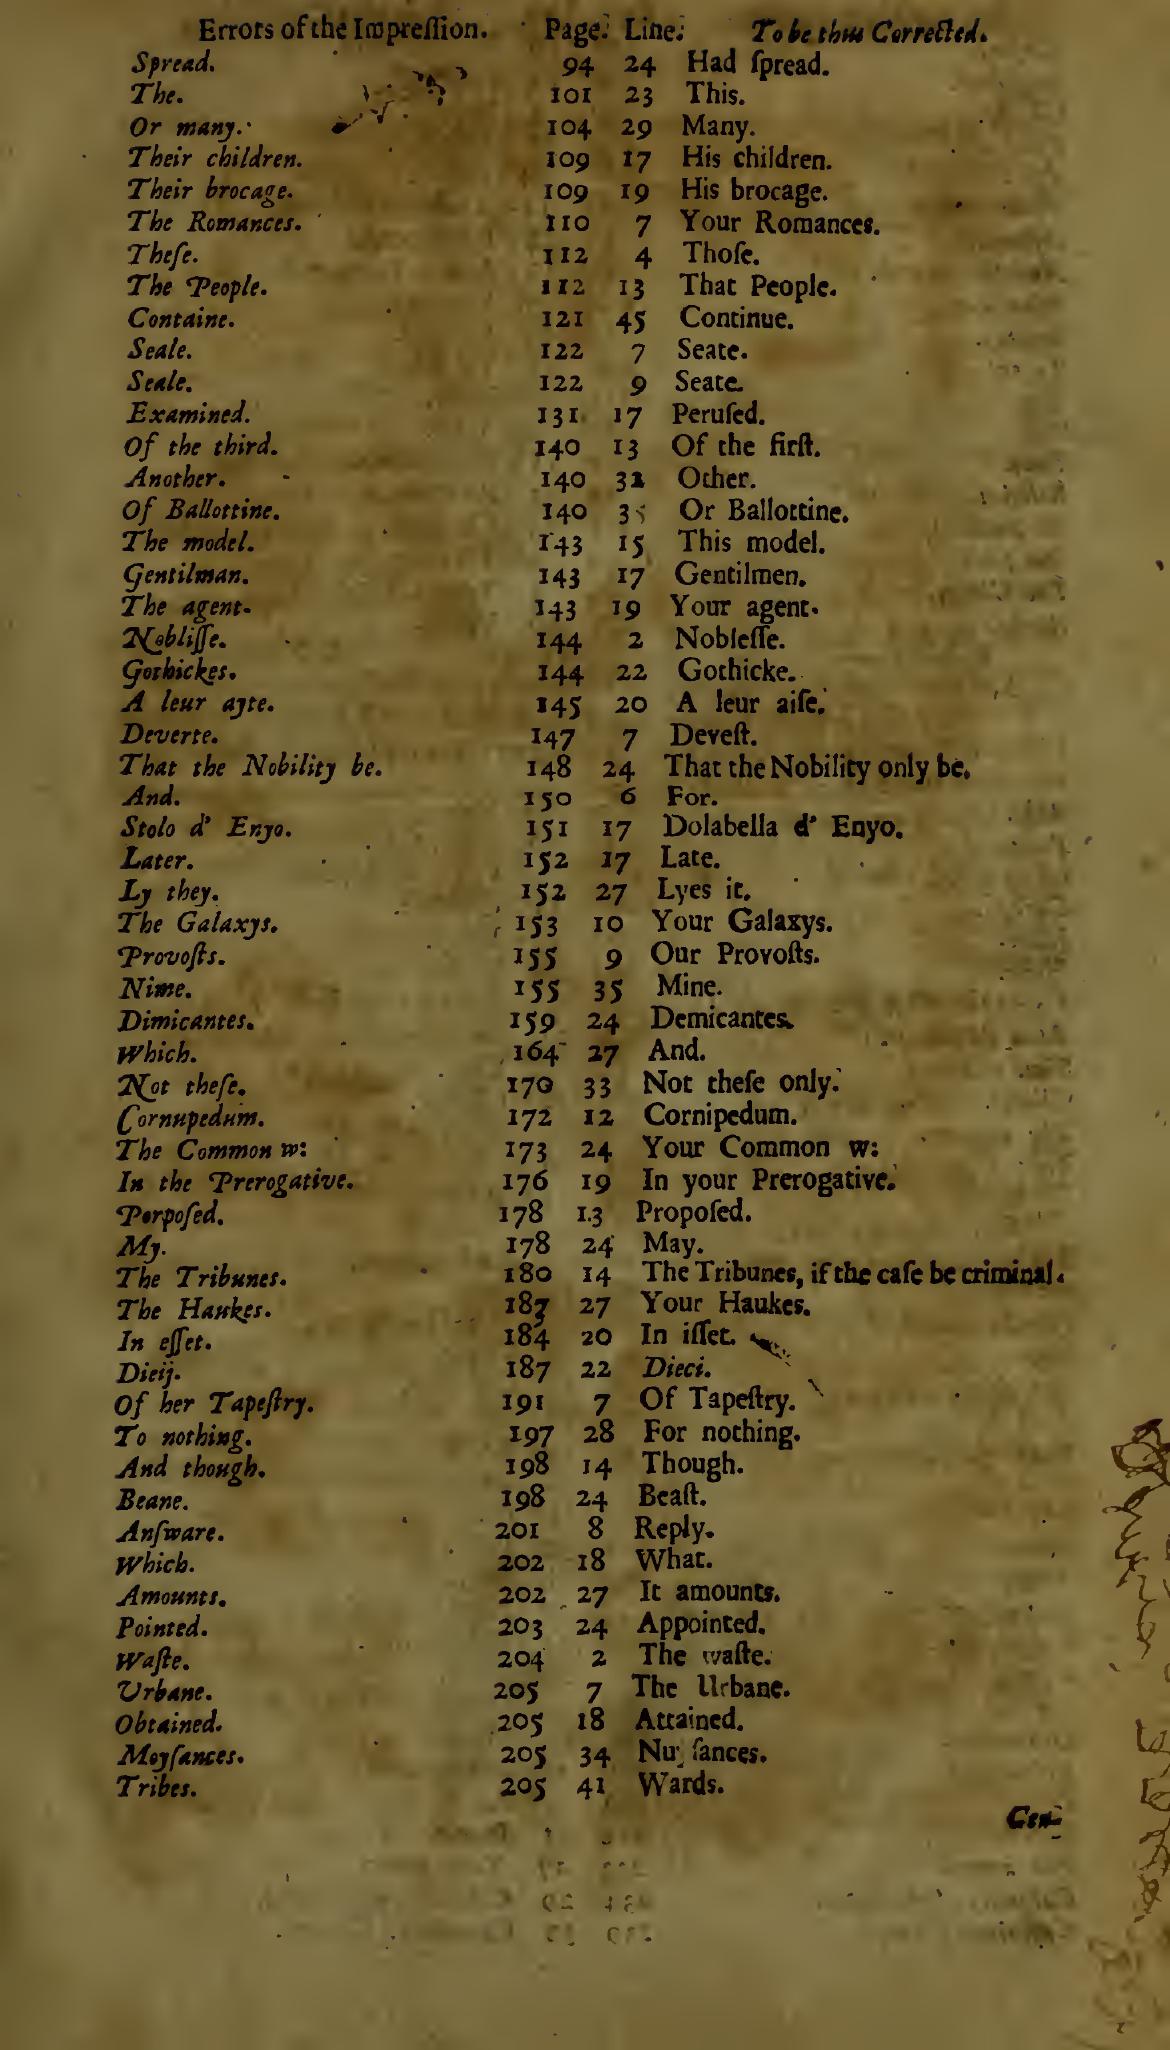 Errors of the Impreſſion. Page. Line. To be thus Correcƈted.
Spread. 94 24 Had ſpread.
The. 101 23 This.
Or many. 104 29 Many.
Their children. 109 17 His children.
Their brocage. 109 19 His brocage.
The Romances. 110 7 Your Romances.
Theſe. 112 4 Thoſe.
The People. 112 13 That People.
Containe. 121 45 Continue.
Seale. 122 7 Seate.
Seale. 122 9 Seate.
Examined. 131 17 Peruſed.
Of the third. 140 13 Of the firſt.
Another. 140 32 Other.
Of Ballottine. 140 35 Or Ballottine.
The model. 143 15 This model.
Gentilman. 143 17 Gentilmen.
The agent. 143 19 Your agent.
Nobliſſe. 144 2 Nobleſſe.
Gothickes. 144 22 Gothicke.
A leur ayte. 145 20 A leur aiſe.
Deverte. 147 7 Deveſt.
That the Nobility be. 148 24 That the Nobility only be.
And. 150 6 For.
Stolo d' Enyo. 151 17 Dolabella d' Enyo.
Later. 152 17 Late.
Ly they. 152 27 Lyes it.
The Galaxys. 153 10 Your Galaxys.
Provoſts. 155 9 Our Provoſts.
Nime. 155 35 Mine.
Dimicantes. 159 24 Demicantes.
Which. 164 27 And.
Not theſe. 170 33 Not theſe only.
Cornupedum. 172 12 Cornipedum.
The Common w: 173 24 Your Common w:
In the Prerogative. 176 19 In your Prerogative.
Porpoſed. 178 13 Propoſed.
My. 178 24 May.
The Tribunes. 180 14 The Tribunes, if the caſe be criminal.
The Haukes. 183 27 Your Haukes.
In eſſet. 184 20 In iſſet.
Dieij. 187 22 Dieci.
Of her Tapeſtry. 191 7 Of Tapeſtry.
To nothing. 197 28 For nothing.
And though. 198 14 Though.
Beane. 198 24 Beaſt.
Anſware. 201 8 Reply.
Which. 202 18 What.
Amounts. 202 27 It amounts.
Pointed. 203 24 Appointed.
Waſte. 204 2 The waſte.
Urbane. 205 7 The Urbane.
Obtained. 205 18 Attained.
Moyſances. 205 34 Nuyſances.
Tribes. 205 41 Wards.
Gen-